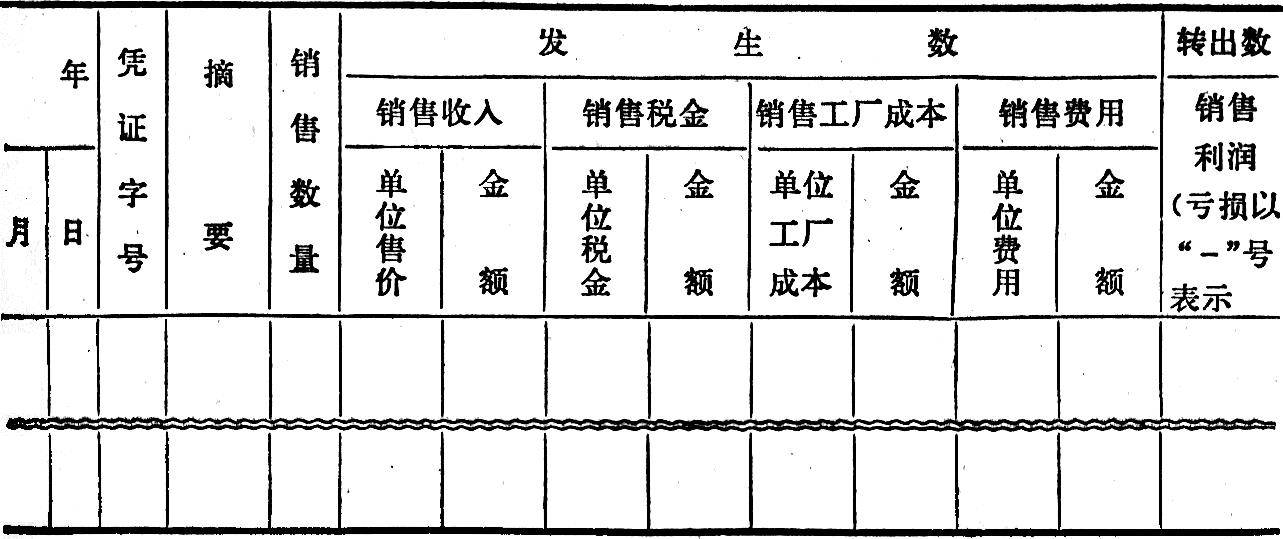 年
月
日
凭证字号
摘要
销售数量
发生数
销售收入
单位售价
金额
销售税金
单位税金
金额
销售工厂成本
单位
工厂
成本
金额
销售费用
单位费用
金额
转出数
销售
利润
(亏损以
“-”号
表示